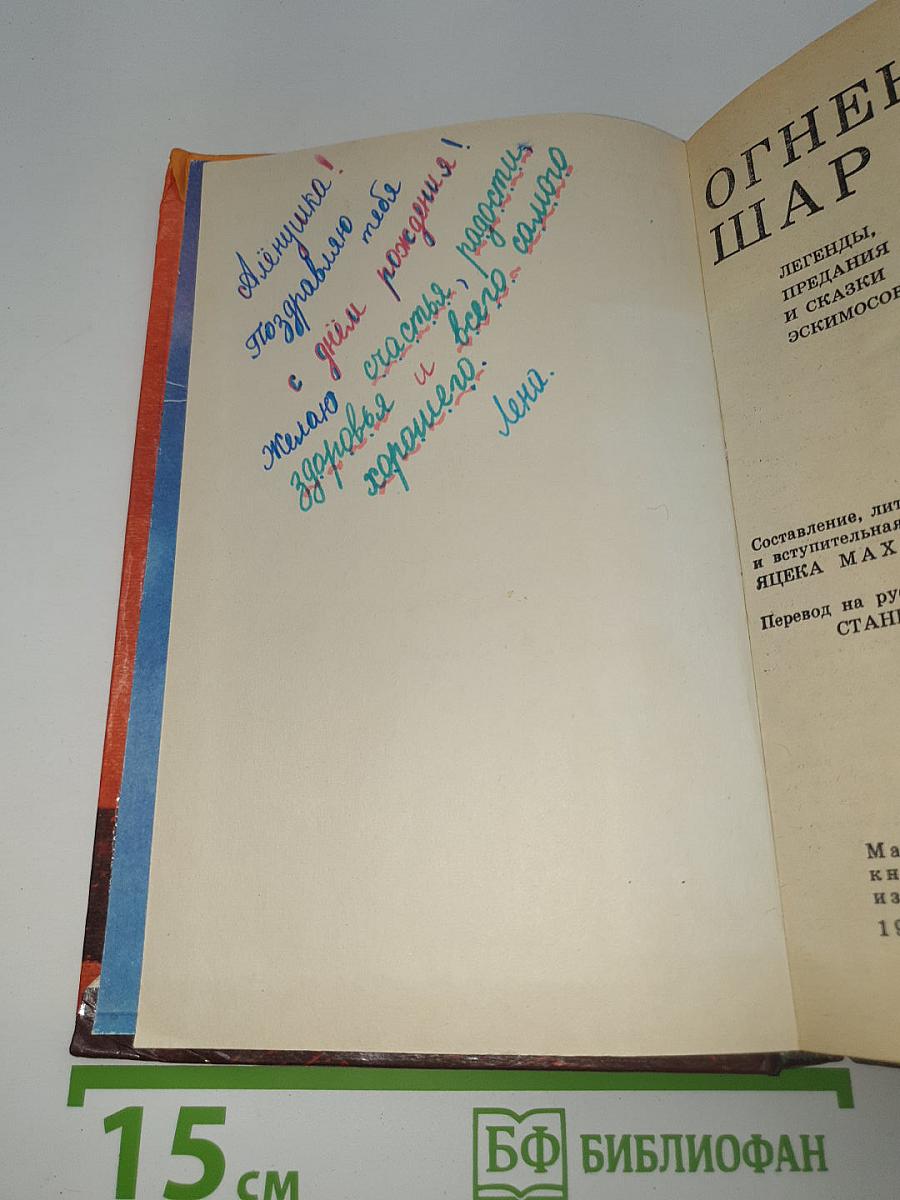 Алёнушка!
Поздравляю тебя
с днём рождения!
Желаю счастья, радости,
здоровья и всего самого
хорошего.
Лена.
ОГНЕН
ШАР
ЛЕГЕНДЫ,
ПРЕДАНИЯ
И СКАЗКИ
ЭСКИМОСОВ
Составление, лит
и вступительная
ЯЦЕКА МАХ
Перевод на рус
СТАН
Ма
кн
из
19
15 см
БФ БИБЛИОФАН